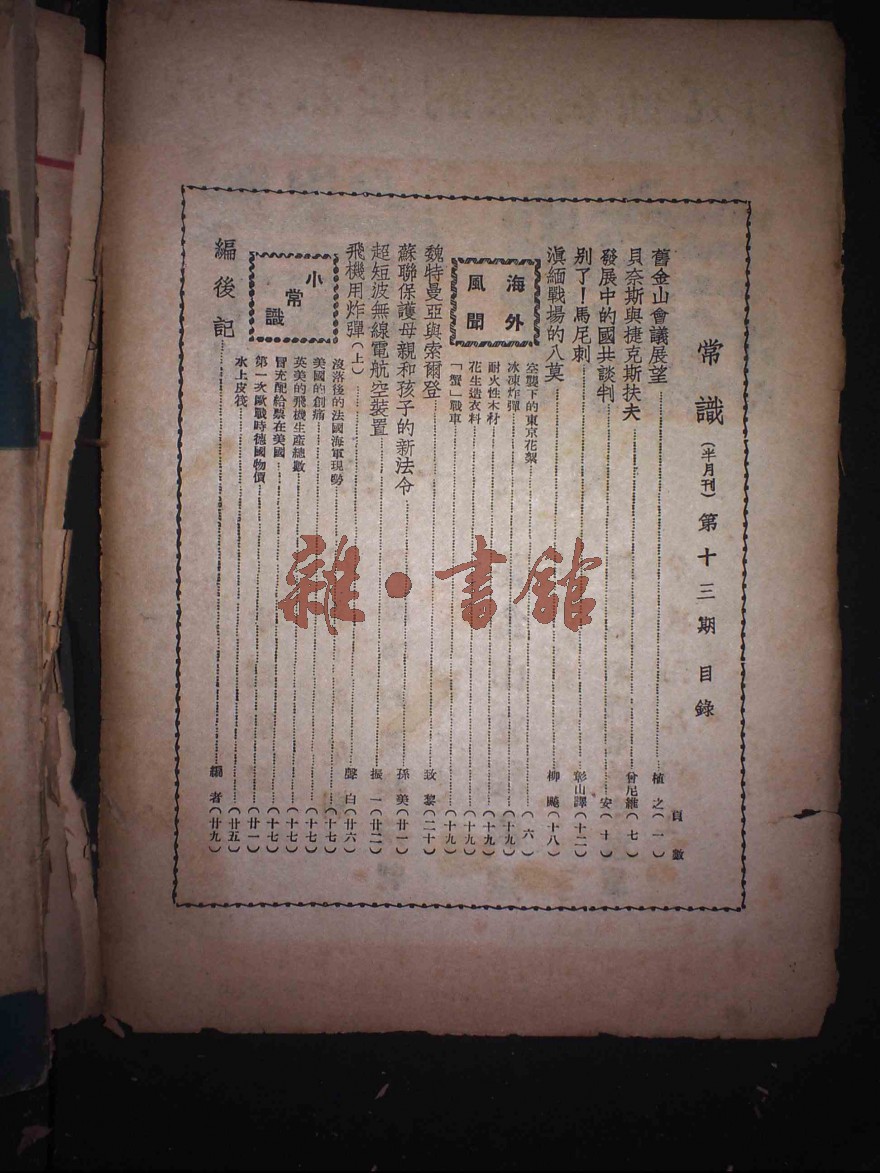 常識(半月刊)第十三期目錄
頁數
舊金山會議展望……植之(一)
貝奈斯與捷克斯扶夫……曾尼維(七)
發展中的國共談判……安(十)
別了!馬尼刺……彰山譯(十二)
滇緬戰場的八莫……柳颺(十八)
海外風聞
空襲下的東京花絮……(六)
冰凍炸彈……(十九)
耐火性木材……(十九)
花生造衣料……(十九)
「蟹」戰車……(十九)
魏特曼亞與索爾登……致黎(二十)
蘇聯保護母親和孩子的新法令……孫美(廿一)
超短波無線電航空裝置……振一(廿二)
飛機用炸彈(上)……聲白(廿六)
小常識
沒落後的法國海軍現勢……(十七)
美國的創痛……(十七)
英美的飛機生產總數……(十七)
冒充配給票在美國……(十七)
第一次歐戰時德國物價……(廿一)
水上皮筏……(廿五)
編後記……編者(廿九)
雜·書館